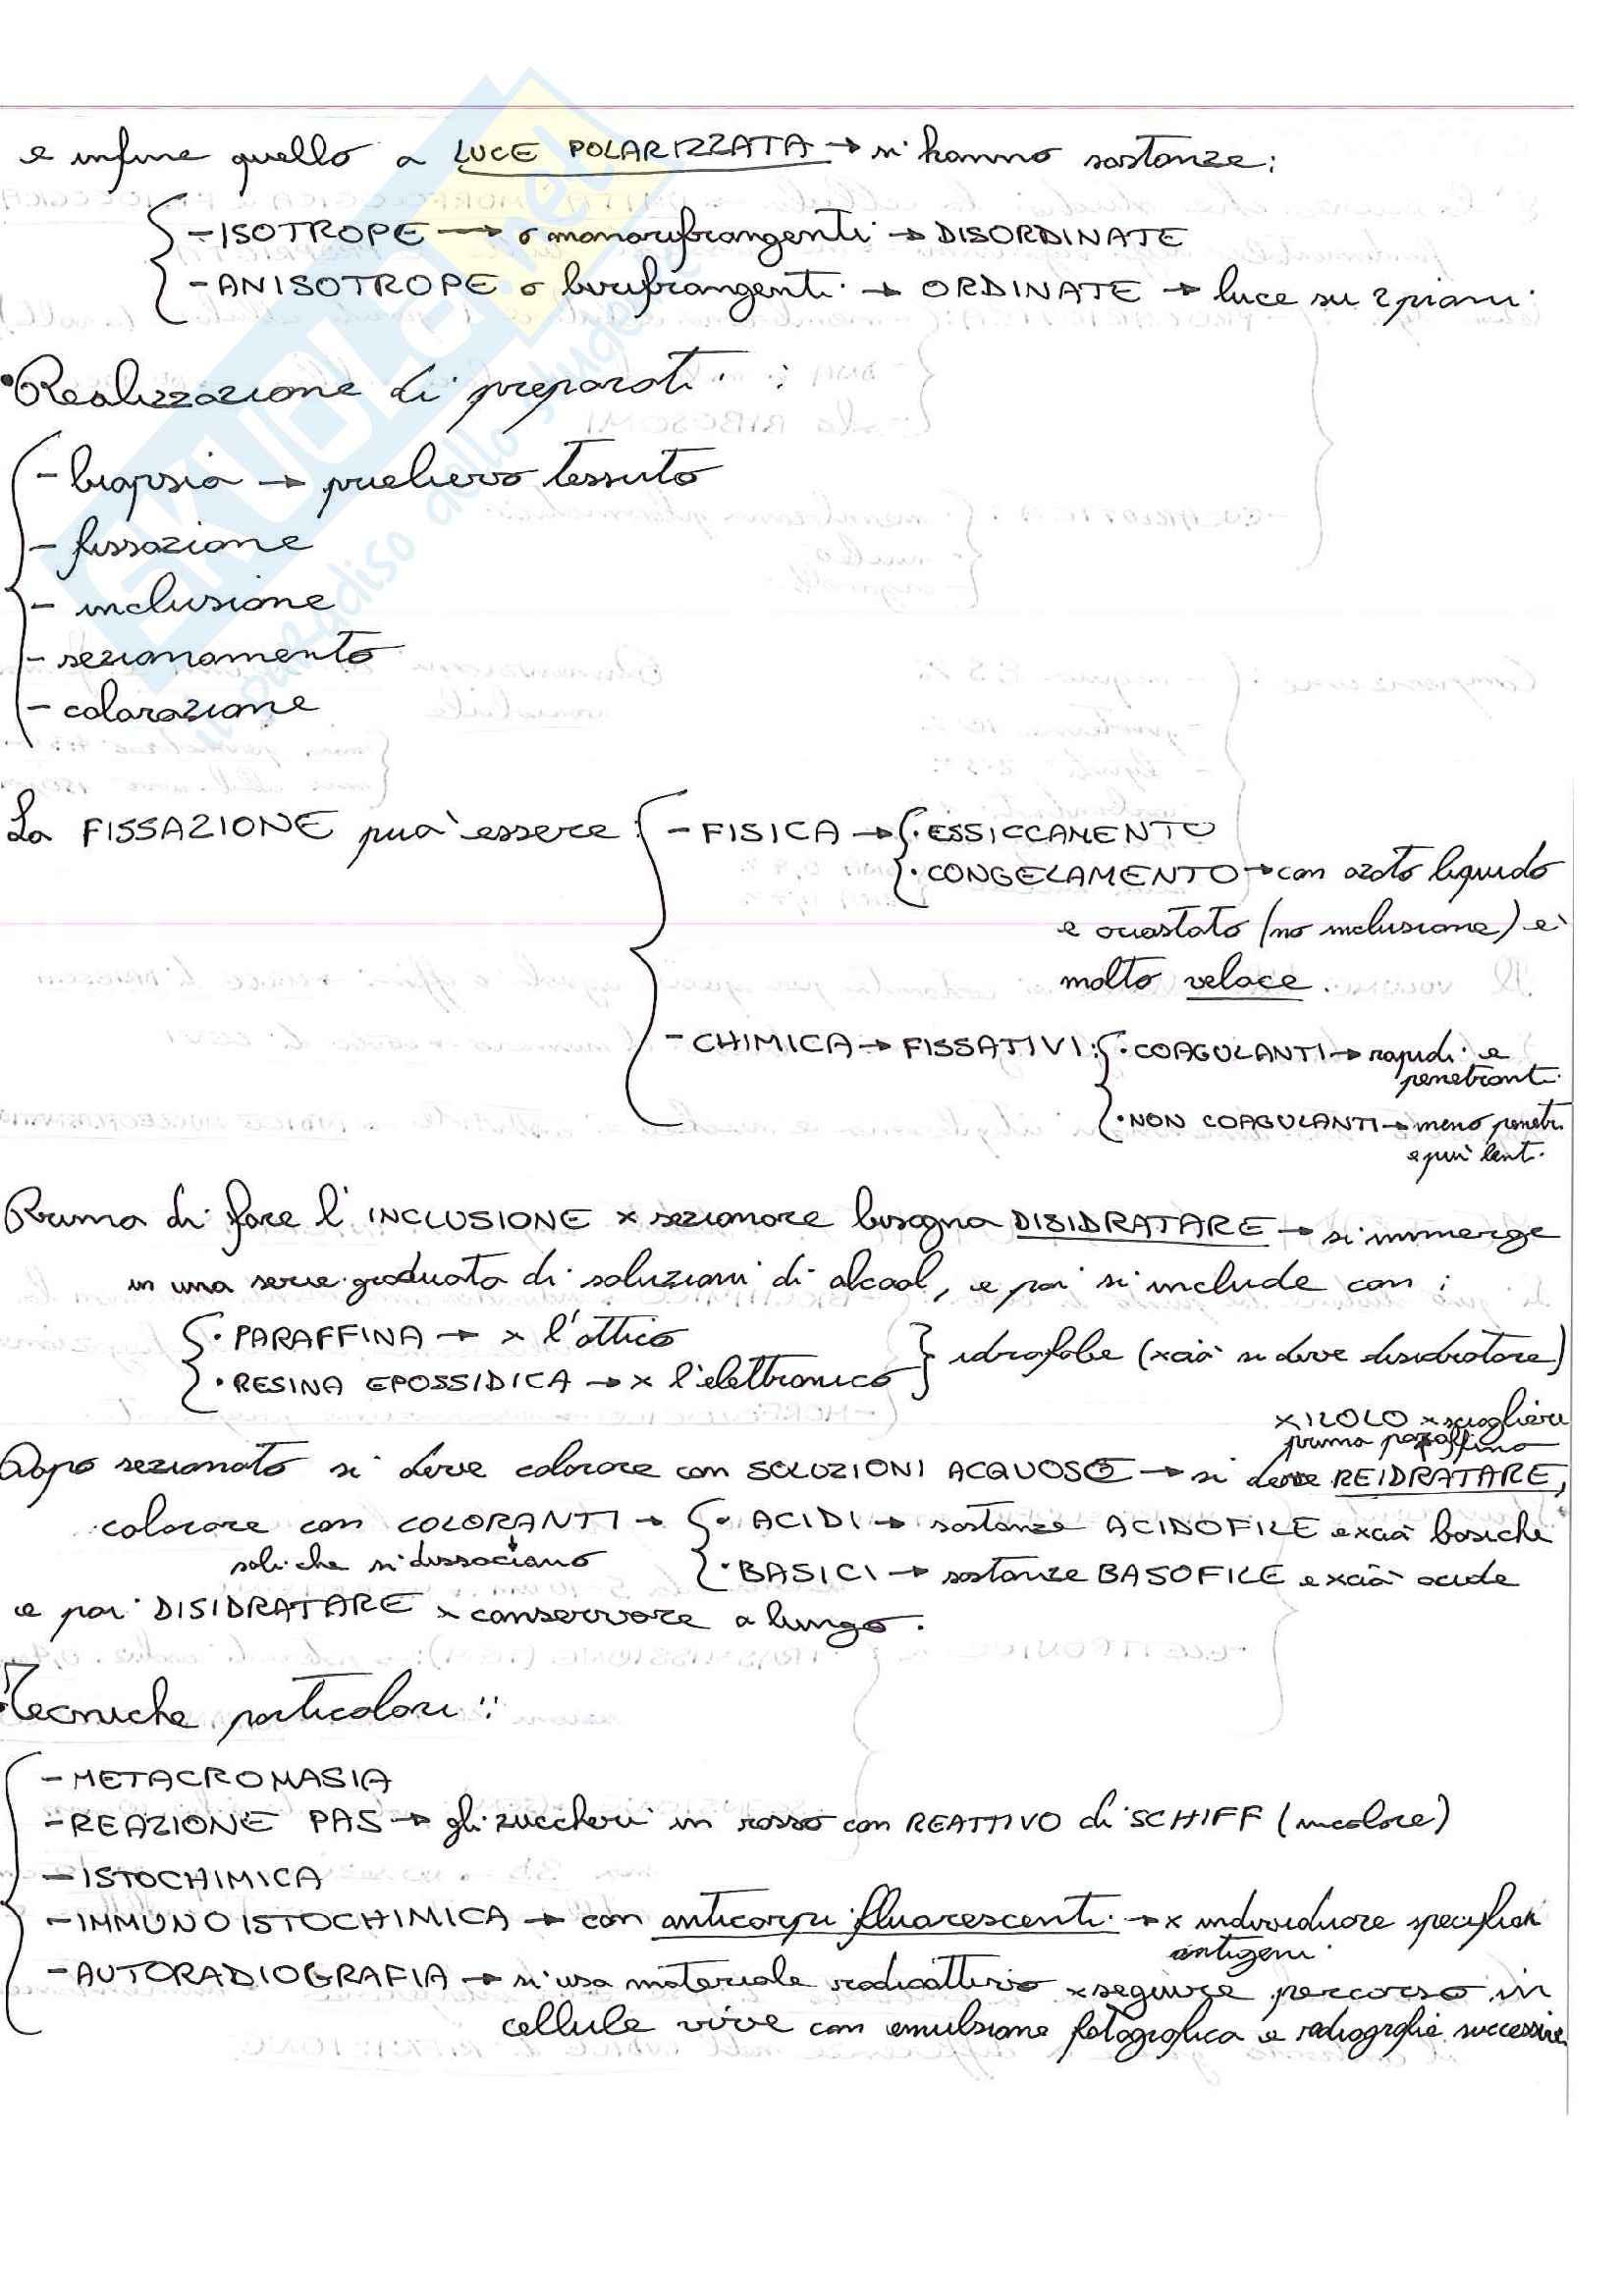 e infine quello a LUCE POLARIZZATA → si hanno sostanze:
- ISOTROPE → o monorifrangenti → DISORDINATE
- ANISOTROPE o birifrangenti → ORDINATE → luce su 2 piani.
• Realizzazione di preparati:
- biopsia → prelievo tessuto
- fissazione
- inclusione
- sezionamento
- colorazione
La FISSAZIONE può essere: - FISICA → · ESSICCAMENTO
· CONGELAMENTO → con azoto liquido
e criostato (no inclusione) è
molto veloce.
- CHIMICA → FISSATIVI: · COAGULANTI → rapidi e
penetranti
· NON COAGULANTI → meno penetr.
e più lenti.
Prima di fare l'INCLUSIONE x sezionare bisogna DISIDRATARE → si immerge
in una serie graduata di soluzioni di alcool, e poi si include con:
· PARAFFINA → x l'ottico
· RESINA EPOSSIDICA → x l'elettronico } idrofobe (xciò si deve disidratare)
XILOLO x sciogliere
prima paraffina
Dopo sezionato si deve colorare con SOLUZIONI ACQUOSE → si deve REIDRATARE,
colorare con COLORANTI → · ACIDI → sostanze ACIDOFILE e xciò basiche
sali che si dissociano · BASICI → sostanze BASOFILE e xciò acide
e poi DISIDRATARE x conservare a lungo.
• Tecniche particolari:
- METACROMASIA
- REAZIONE PAS → gli zuccheri in rosso con REATTIVO di SCHIFF (incolore)
- ISTOCHIMICA
- IMMUNOISTOCHIMICA → con anticorpi fluorescenti → x individuare specifici
antigeni.
- AUTORADIOGRAFIA → si usa materiale radioattivo x seguire percorso in
cellule vive con emulsione fotografica e radiografie successive
SKUOLA.net
il paradiso dello studente